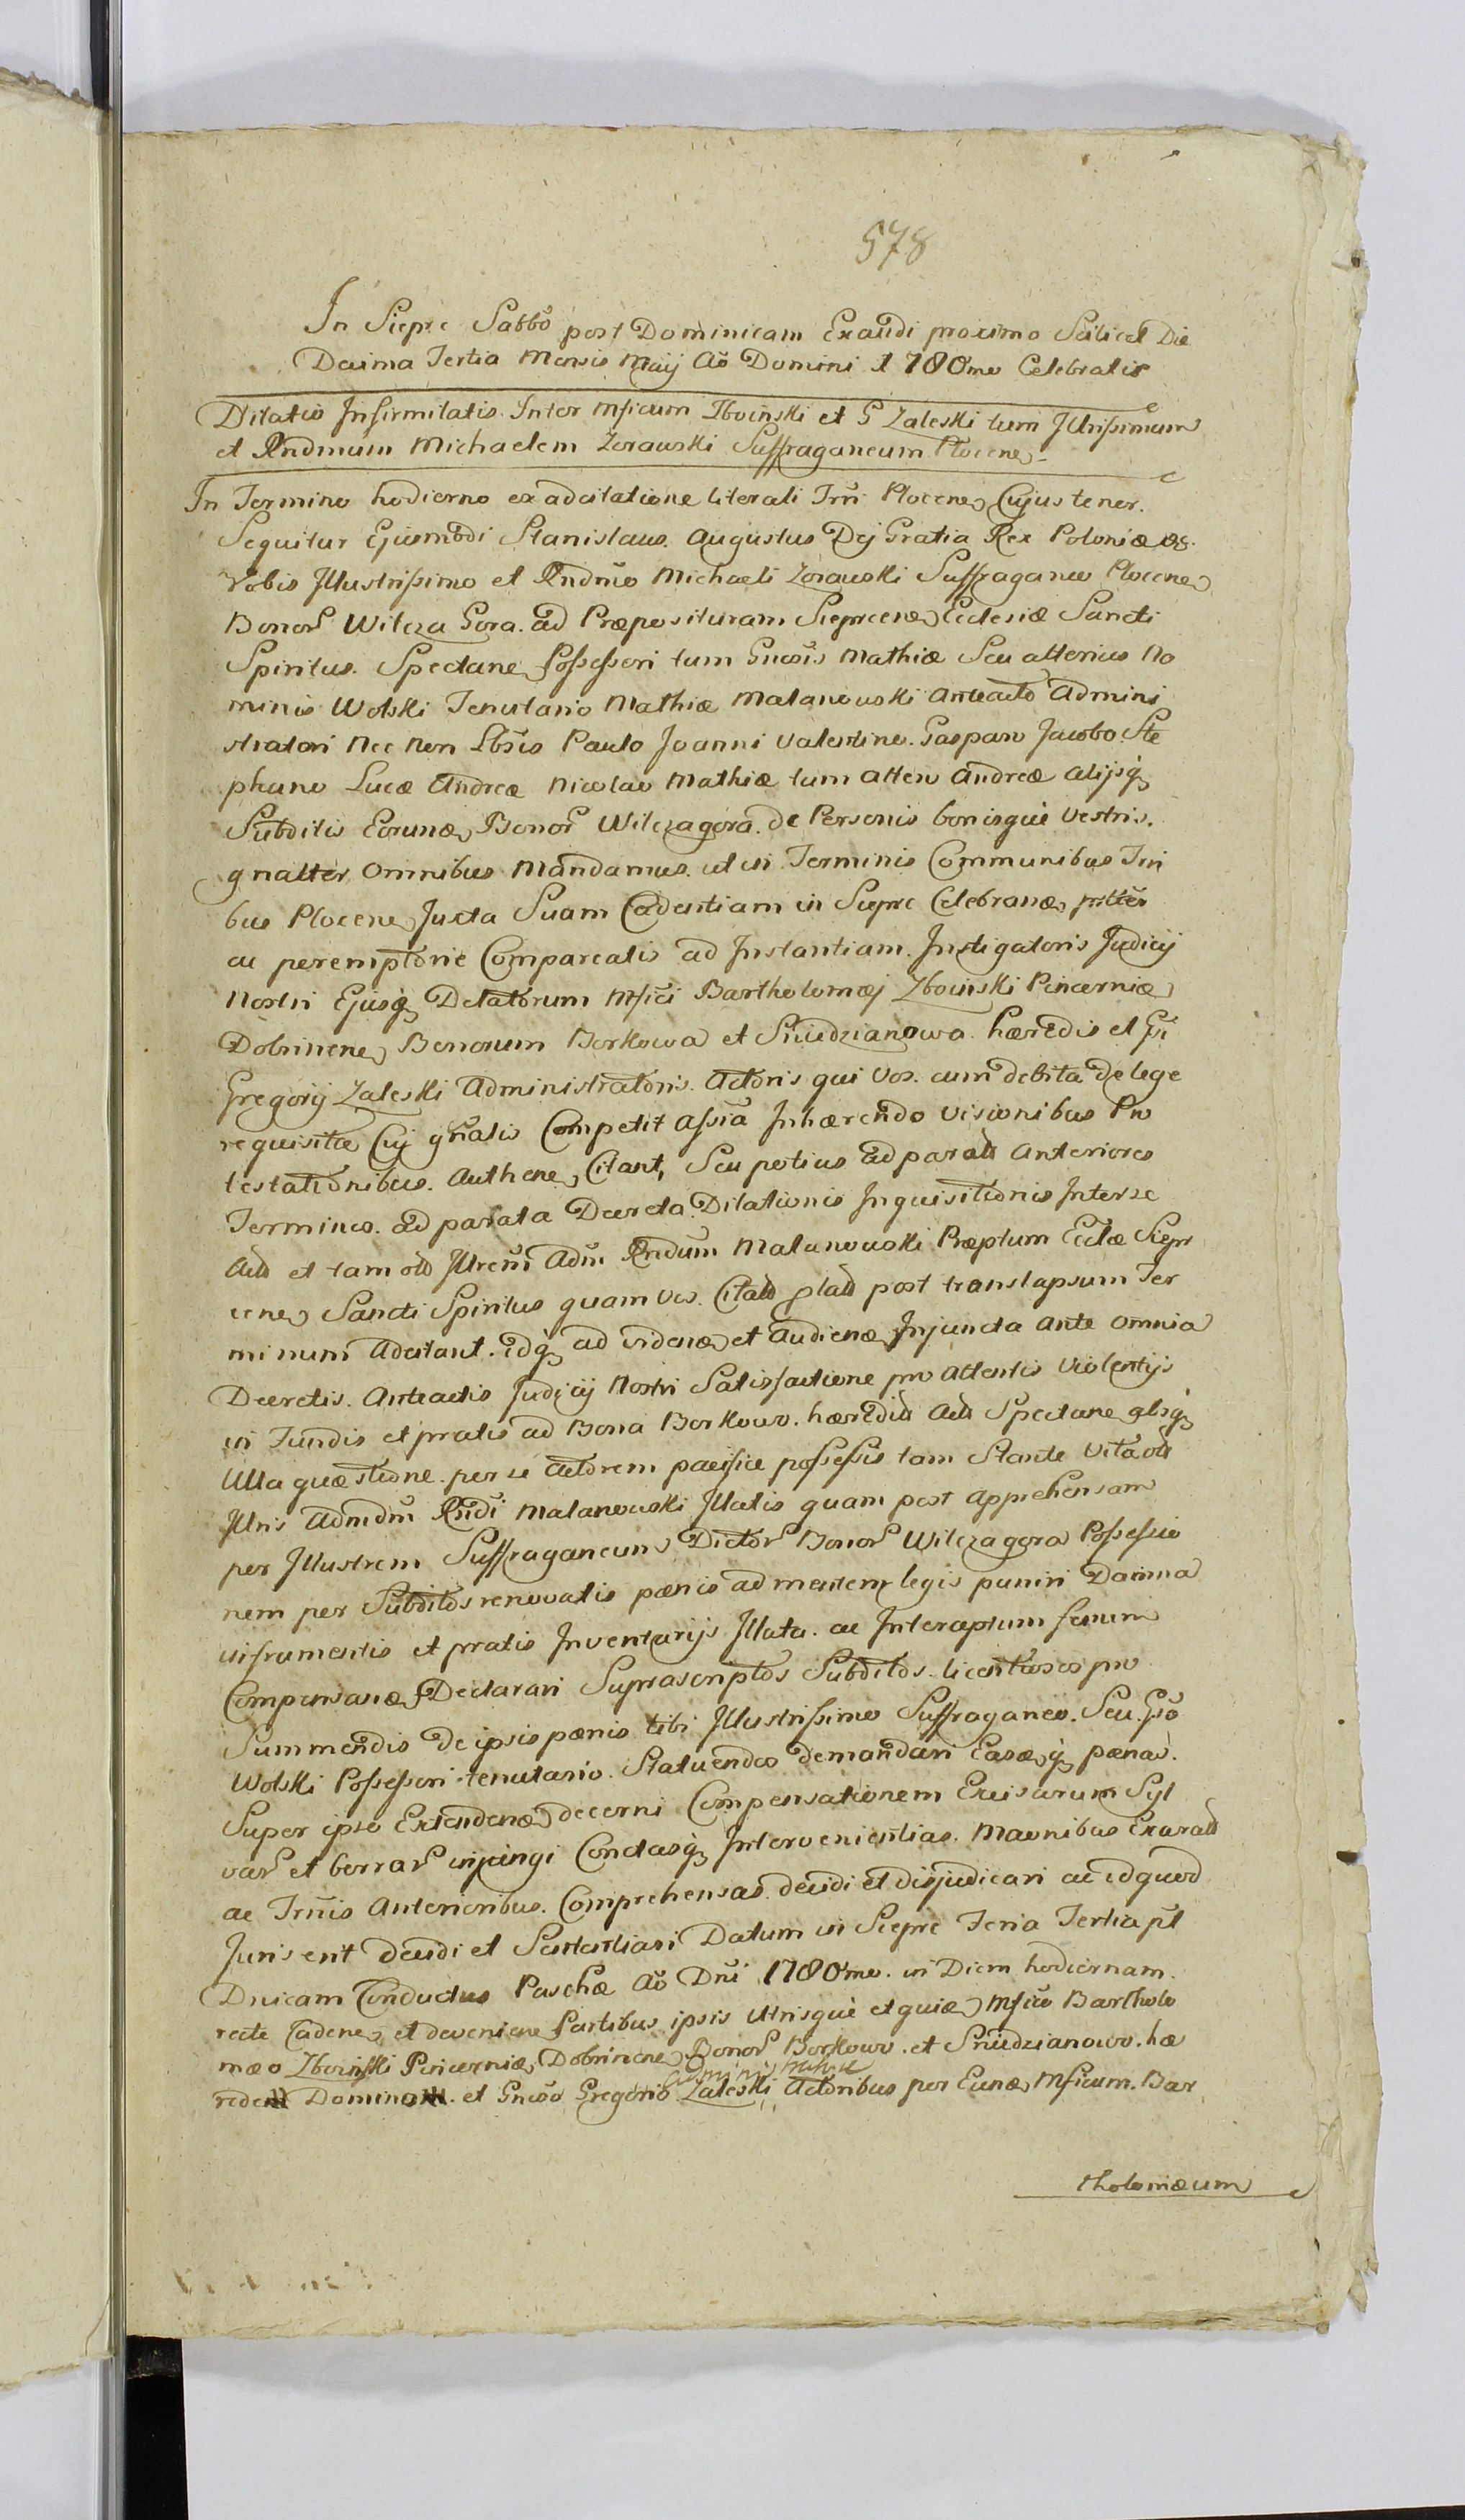 578
In Sieprc Sabbõ post Dominicam Exaudi proximo Scilicet Die
Decima Tertia Mensis Maij Aõ Domini 1780mo Celebratis
Dilatio Infirmitatis Inter Mficum Zboiński et G Zaleski tum Illrissimum
et Rndmum Michaelem Zorawski Suffraganeum Plocene
In Termino hodierno ex adcitatione literali Trri Plocene Cujus tenor.
Sequitur Ejusmodi Stanislaus. Augustus Dej Gratia Rex Poloniæ &c.
Vobis Illustrissimo et Rndmo Michaeli Zorawski Suffraganeo Plocene
Bonor Wilcza Gora. ad Præposituram Sieprcenæ Eclesiæ Sancti
Spiritus. Spectane Possessori tum Gnosis Mathiæ Seu alterius No
minis Wolski Tenutario Mathiæ Malanowski Anteacto Admini
stratori Nec Non Lbris Paulo Joanni Valentino. Gasparo Jacobo. Ste
phano Lucæ Andreæ Nicolao Mathiæ tum altero Andreæ alijsq
Subditis Eorunæ Bonor Wilczagora. de Personis bonisque vestris.
gnalter Omnibus Mandamus. ut in Terminis Communibus Trri
bus Plocene Juxta Suam Cadentiam in Sieprc Celebranæ prlter
ac peremptorie Compareatis ad Instantiam. Instigatoris Judicij
Nostri Ejusq Delatorum Mfici Bartholomæj Zboinski Pincerniæ
Dobrinene Bonorum Borkowa et Sniedzianowa. hæredis et Gi
Gregorij Zaleski Administratoris. Actoris qui Vos. cum debita de lege
requisita Cuj gnalis Competit Assia Inhærendo Visionibus Pro
testationibus. Authene Citant, Seu potius ad parata Anteriores
Terminos. ad parata Decreta Dilationis Inquisitionis Interse
Acta et tam olt Illrem Adm Rndum Malanowski Præptum Ecclæ Siepr
cene Sancti Spiritus quam Vos. Citatt plat post translapsum Ter
minum Adcitant. idq ad videnæ et Audienæ Injuncta ante omnia
Decretis. Anteactis Judicij Nostri Satisfactione pro attentis Violentijs
in Fundis et pratis ad Bona Borkowo. hæredita Acta Spectane absq
Ulla quæstione. per se Actorem pacifice possessis tam Stante Vita olt
Illris Admdm Rndi Malanowski Illatis quam post Apprehensam
per Illustrem Suffraganeum Dictor Bonor Wilczagora Possessio
nem per Subditos renovatis pænis ad mentem legis puniri Damna
in frumentis et pratis Inventarijs Illata. ac Interceptum fenum
Compensanæ Declarari Suprascriptos Subditos. licentiosos pro
Summendis de ipsis pænis tibi Illustrissimo Suffraganeo. Seu. Gso
Wolski Possessori tenutario. Statuendos demandari Easæq pænas.
Super ipso Extendenæ decerni Compensationem Excisarum Syl
var et borrar injungi Cunctasq Intervenientias. Manibus Exaratt
ac Trriis Anterioribus. Comprehensas. decidi et disjudicari ac idquod
Juris erit decidi et Sententiari Datum in Sieprc Feria Tertia pt
Dnicam Conductus Paschæ Aõ Dni 1780mo. in Diem hodiernam.
recte Cadene et devenienæ Partibus ipsis Utrisque et quiæ Mfico Bartholo
mæo Zboinski Pincerniæ Dobrinene Bonor Borkowo. et Sniedzianowo. hæ
rede Domino. et Gnoso Gregorio Zaleski Actoribus per Eunæ Mficum. Bar
tholomæum